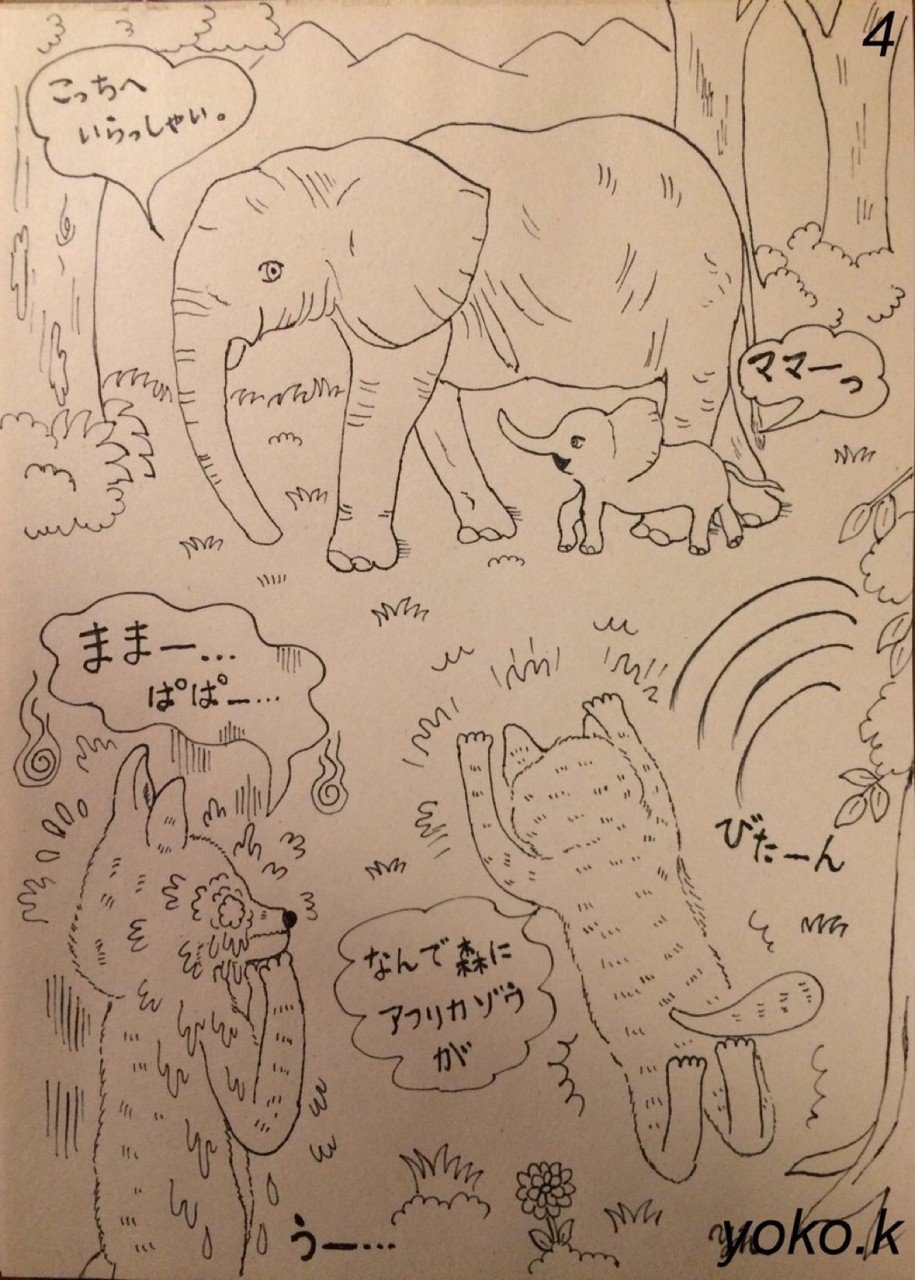 4
こっちへ
いらっしゃい。
ママーっ
ままー…
ぱぱー…
びたーん
なんで森に
アフリカゾウ
が
うー…
yoko.k